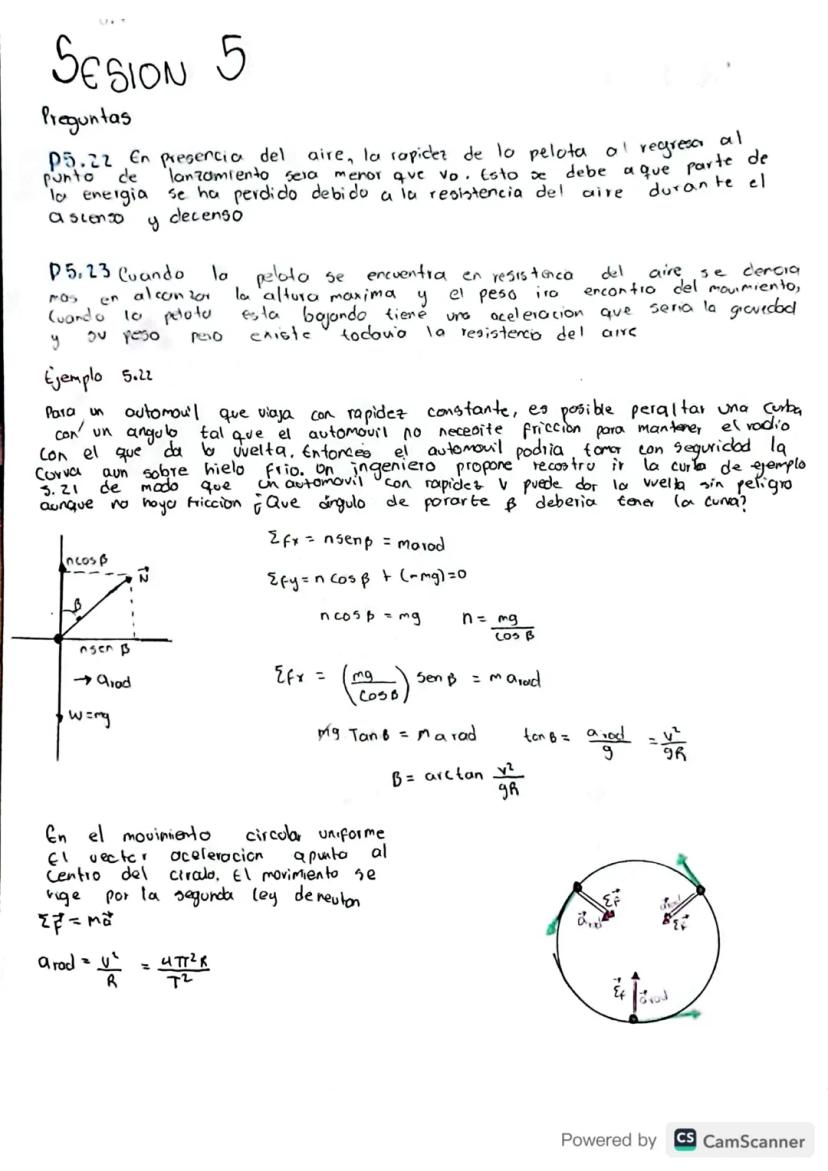 SESION 5
Preguntas
P5.22 En presencia del aire, la rapidez de la pelota al regresar al
punto de lanzamiento sera menor que vo. Esto se debe a que parte de
la energia se ha perdido debido a la resistencia del aire durante el
ascenso y decenso
P5.23 Cuando la pelota se encuentra en resistenca del aire se
mas en alcanzar la altura maxima y el peso ira encontra del movimiento,
Cuando la pelota esta bajando tiene una aceleracion que seria la gravedad
y su peso pero existe todavia la resistencia del aire
Ejemplo 5.22
Para un automovil que viaja con rapidez constante, es posible peraltar una curba
con un angulo tal que el automovil no necesite friccion para mantener el radio
con el que da la vuelta. Entonces el automovil podria tomar con seguridad la
curva aun sobre hielo frio. Un ingeniero propone recostru ir la curba de ejemplo
5.21 de modo que un automovil con rapidez v puede dar la vuelta sin peligro
aunque no haya friccion ¿Que ángulo de pararte β deberia tener la curva?
ncosβ
N⃗
β
nsen β
→ arad
W=mg
Σfx = nsenβ = marad
Σfy = n cosβ + (-mg)=0
n cosβ = mg n = mg/cosβ
Σfx = (mg/cosβ) senβ = m arad
mg Tanβ = m arad tanβ = arad/g = v²/gR
β = arctan v²/gR
En el movimiento circular uniforme
El vector aceleracion apunta al
centro del cirulo. El movimiento se
rige por la segunda ley de neuton
ΣF⃗ = ma⃗
arad = v²/R = 4π²R/T²
ΣF⃗
a⃗rad
a⃗rad
ΣF⃗
Σf⃗
a⃗rad
Powered by CS CamScanner